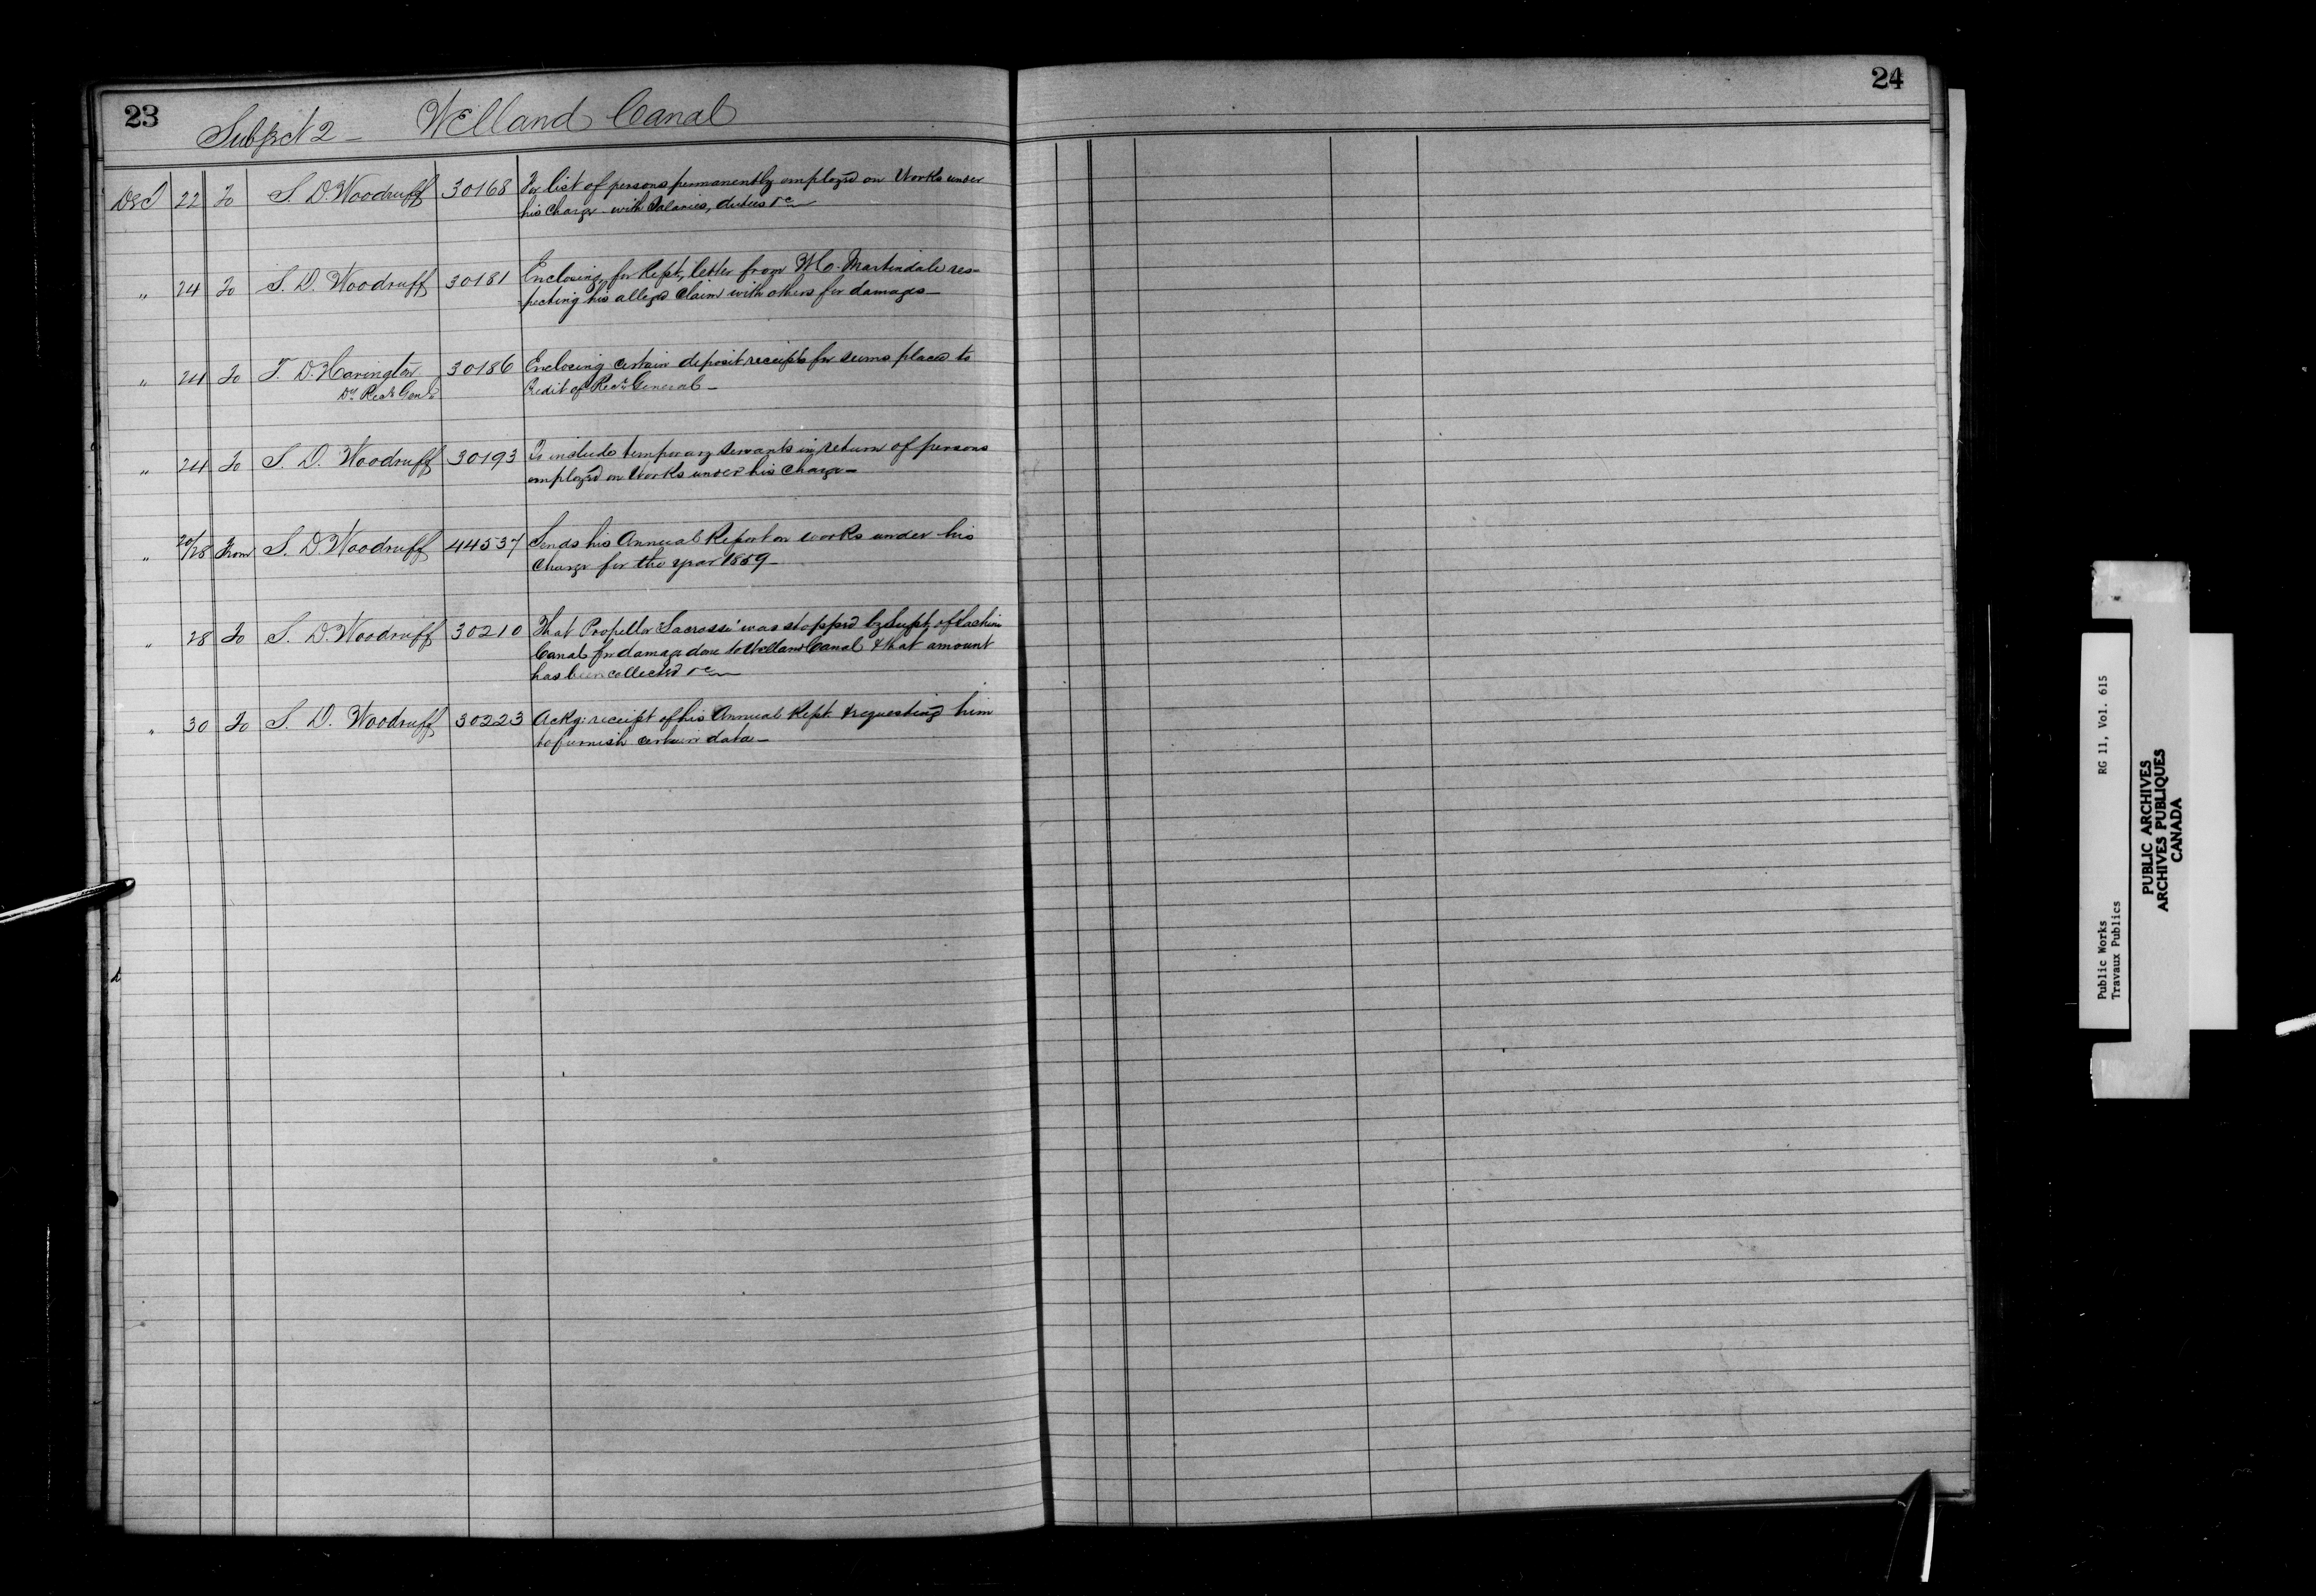 23
Subject 2 - Welland Canal
Dec 22 To S. D. Woodruff 30168 For list of persons permanently employed on Works under
his charge with Salaries, duties &c
" 24 To S. D. Woodruff 30181 Enclosing for Rept, letter from Martindale res-
pecting his alleged claim with others for damages -
" 24 To T. D. Harington 30186 Enclosing certain deposit receipts for sums placed to
Dy Recr Genl Credit of Recr General -
" 24 To S. D. Woodruff 30193 To include temporary servants in return of persons
employed on Works under his charge -
" 20/28 From S. D. Woodruff 44537 Sends his Annual Report on works under his
Charge for the year 1859 -
" 28 To S. D. Woodruff 30210 That Propellor "Lacrosse" was stopped by Supt of Lachine
Canal for damage done to Welland Canal & that amount
has been collected &c
" 30 To S. D. Woodruff 30223 Ackg: receipt of his Annual Rept. & requesting him
to furnish certain data -
24
Public Works RG 11, Vol. 615
Travaux Publics
PUBLIC ARCHIVES
ARCHIVES PUBLIQUES
CANADA